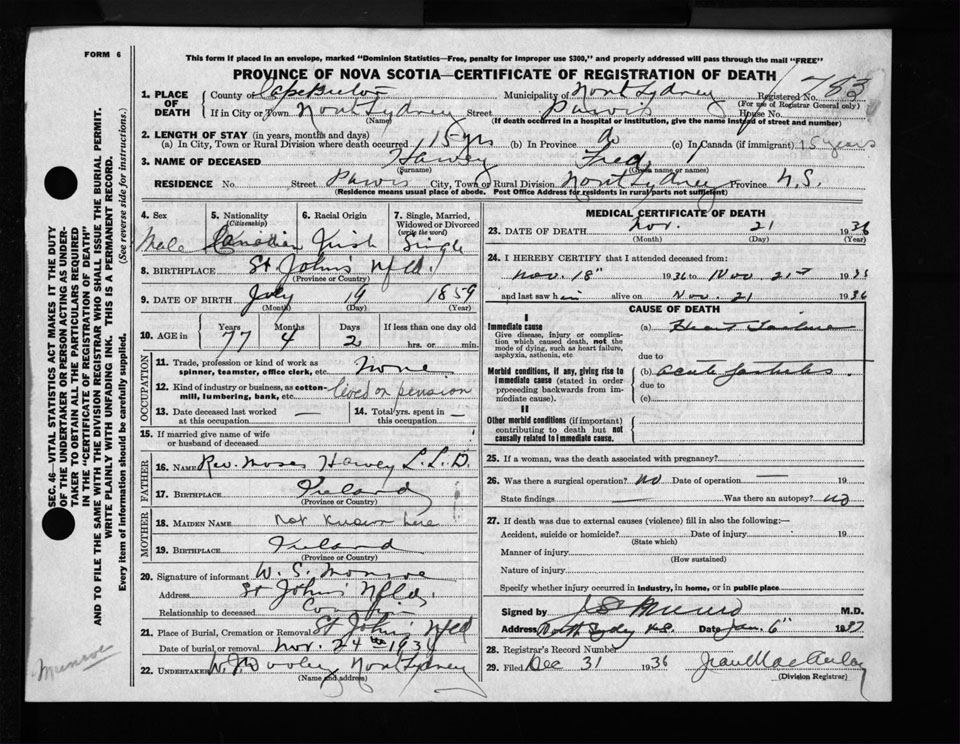 FORM 6
This form if placed in an envelope, marked "Dominion Statistics—Free, penalty for improper use $300," and properly addressed will pass through the mail "FREE"
PROVINCE OF NOVA SCOTIA—CERTIFICATE OF REGISTRATION OF DEATH
1. PLACE OF DEATH County of Cape Breton Municipality of North Sydney Registered No.
(For use of Registrar General only)
If in City or Town North Sydney Street Purvis House No.
(Name) (If death occurred in a hospital or institution, give the name instead of street and number)
2. LENGTH OF STAY (in years, months and days)
(a) In City, Town or Rural Division where death occurred 15 yrs (b) In Province do (c) In Canada (if immigrant) 15 years
3. NAME OF DECEASED Harvey Fred,
(Surname) (Given name or names)
RESIDENCE No. Street Purvis City, Town or Rural Division North Sydney Province N.S.
(Residence means usual place of abode. Post Office Address for residents in rural parts not sufficient)
4. Sex Male
5. Nationality (Citizenship) Canadian
6. Racial Origin Irish
7. Single, Married, Widowed or Divorced (write the word) Single
8. BIRTHPLACE St. John's Nfld.
(Province or Country)
9. DATE OF BIRTH July 19 1859
(Month) (Day) (Year)
10. AGE in Years Months Days If less than one day old
77 4 2 hrs. or min.
OCCUPATION
11. Trade, profession or kind of work as spinner, teamster, office clerk, etc. None
12. Kind of industry or business, as cotton-mill, lumbering, bank, etc. lived on pension
13. Date deceased last worked at this occupation —
14. Total yrs. spent in this occupation —
15. If married give name of wife or husband of deceased
FATHER
16. NAME Rev. Moses Harvey L.L.D.
17. BIRTHPLACE Ireland
(Province or Country)
MOTHER
18. MAIDEN NAME not known here
19. BIRTHPLACE Ireland
(Province or Country)
20. Signature of informant W. S. Monroe
Address St John's Nfld.
Relationship to deceased
21. Place of Burial, Cremation or Removal St John's Nfld
Date of burial or removal Nov. 24th 1936
22. UNDERTAKER W. J. Dooley North Sydney
(Name and address)
MEDICAL CERTIFICATE OF DEATH
23. DATE OF DEATH Nov. 21 1936
(Month) (Day) (Year)
24. I HEREBY CERTIFY that I attended deceased from
Nov. 18" 1936 to Nov 21st 1936
and last saw him alive on Nov. 21 1936
CAUSE OF DEATH
I
Immediate cause
Give disease, injury or complication which caused death, not the mode of dying, such as heart failure, asphyxia, asthenia, etc
(a) Heart Failure
due to
Morbid conditions, if any, giving rise to immediate cause (stated in order proceeding backwards from immediate cause).
(b) acute Gastritis.
due to
(c)
II
Other morbid conditions (if important) contributing to death but not causally related to immediate cause.
25. If a woman, was the death associated with pregnancy?
26. Was there a surgical operation? No Date of operation — 19
State findings — Was there an autopsy? No
27. If death was due to external causes (violence) fill in also the following:—
Accident, suicide or homicide? Date of injury 19
(State which)
Manner of injury
(How sustained)
Nature of injury
Specify whether injury occurred in industry, in home, or in public place
Signed by M.D.
Address North Sydney N.S. Date Jan. 6" 1937
28. Registrar's Record Number
29. Filed Dec 31 1936 Jean MacAulay
(Division Registrar)
SEC. 46—VITAL STATISTICS ACT MAKES IT THE DUTY
OF THE UNDERTAKER OR PERSON ACTING AS UNDER-
TAKER TO OBTAIN ALL THE PARTICULARS REQUIRED
IN THE "CERTIFICATE OF REGISTRATION OF DEATH"
AND TO FILE THE SAME WITH THE DIVISION REGISTRAR WHO SHALL ISSUE THE BURIAL PERMIT.
WRITE PLAINLY WITH UNFADING INK. THIS IS A PERMANENT RECORD.
Every item of information should be carefully supplied. (See reverse side for instructions.)
Munroe